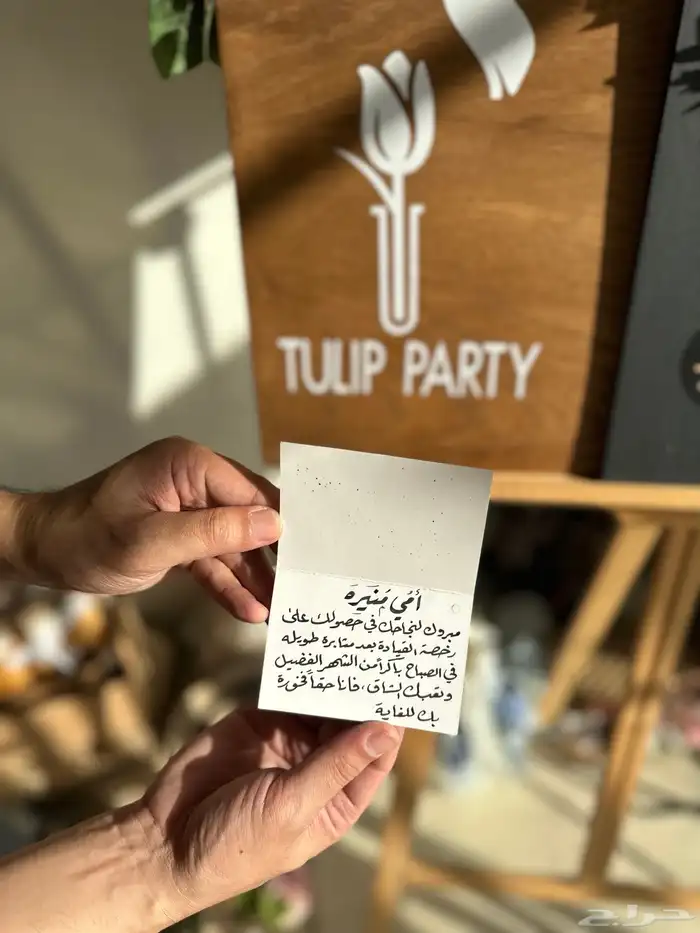 TULIP PARTY
أمي مَنيَرَه
مبروك لنجاحك في حصولك على
رخصة القيادة بعد مثابرة طويله
في الصباح باكراً من الشهر الفضيل
وتعبك الشاق، فانا حقاً فخورة
بك للغاية
حراج